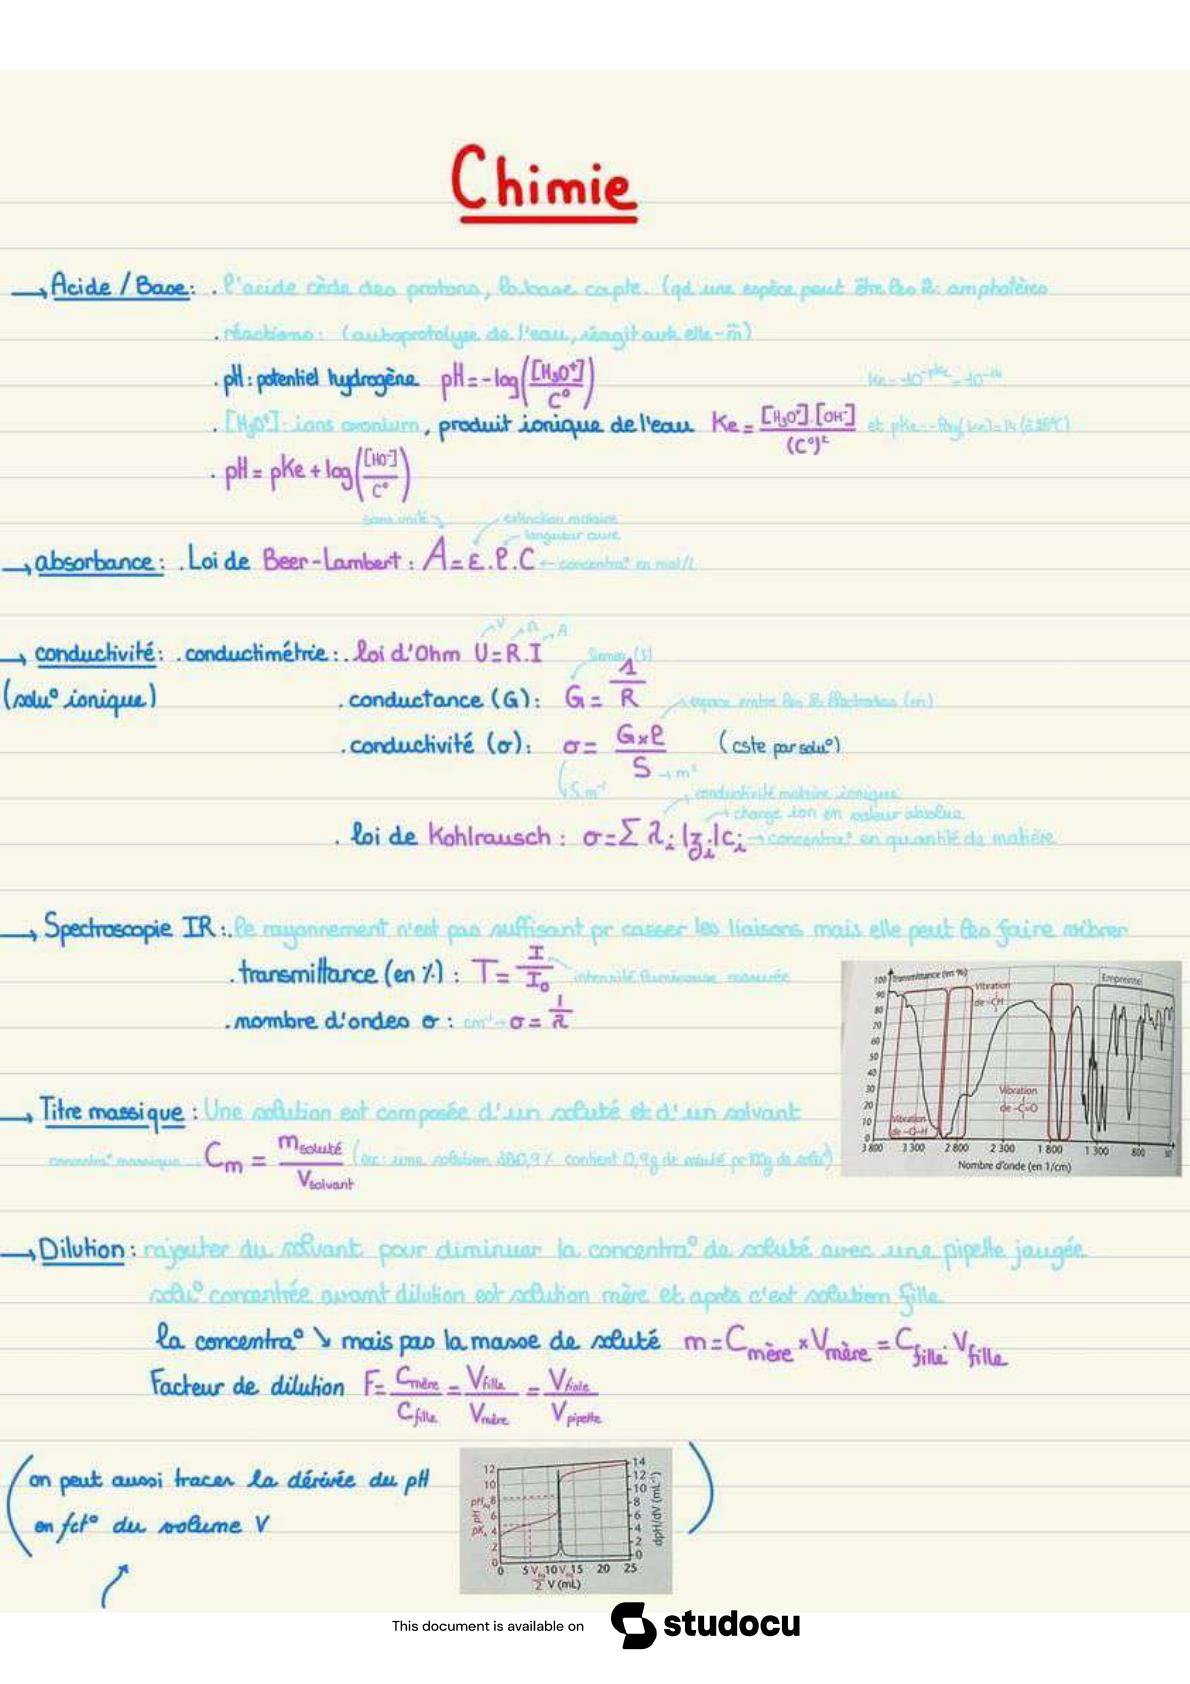 Chimie
→ Acide / Base : . l'acide cède des protons, la base capte. (qd une espèce peut être les 2 : amphotères
. réactions : (autoprotolyse de l'eau, réagit avk elle-m̃)
. pH : potentiel hydrogène pH = -log([H₃O⁺]/C°) Ke = 10^-pKe = 10^-14
. [H₃O⁺] : ions oxonium, produit ionique de l'eau Ke = [H₃O⁺].[OH⁻]/(C°)² et pKe = -log(Ke) = 14 (à 25°C)
. pH = pKe + log([HO⁻]/C°)
sans unité extinction molaire
longueur cuve
→ absorbance : . Loi de Beer-Lambert : A = ε.l.C ← concentra° en mol/L
V Ω A
→ conductivité : . conductimétrie : . loi d'Ohm U = R.I Siemens (S)
(solu° ionique) . conductance (G) : G = 1/R → espace entre les 2 électrodes (m)
. conductivité (σ) : σ = G×l/S (cste par solu°)
S.m⁻¹ → m²
conductivité molaire ionique
charge ion en valeur absolue
. loi de Kohlrausch : σ = Σ λᵢ |zᵢ| cᵢ → concentra° en quantité de matière
→ Spectroscopie IR : . le rayonnement n'est pas suffisant pr casser les liaisons mais elle peut les faire vibrer
. transmittance (en %) : T = I/I₀ intensité lumineuse mesurée
. nombre d'ondes σ : cm⁻¹ → σ = 1/λ
Transmittance (en %)
Vibration de -CH
Empreinte
100
90
80
70
60
50
40
30
20
10
0
Vibration de -O-H
Vibration de -C=O
3 800 3 300 2 800 2 300 1 800 1 300 800
Nombre d'onde (en 1/cm)
→ Titre massique : Une solution est composée d'un soluté et d'un solvant
concentra° massique → Cm = m soluté/V solvant (ex : une solution à 0,9% contient 0,9g de soluté pr 100g de solu°)
→ Dilution : rajouter du solvant pour diminuer la concentra° de soluté avec une pipette jaugée
solu° concentrée avant dilution est solution mère et après c'est solution fille
la concentra° ↘ mais pas la masse de soluté m = C mère × V mère = C fille . V fille
Facteur de dilution F = C mère/C fille = V fille/V mère = V fiole/V pipette
(on peut aussi tracer la dérivée du pH
en fct° du volume V)
12
10
pH éq 8
6
pKₐ 4
2
0
pH
14
12
10
8
6
4
2
0
dpH/dV (mL⁻¹)
0 5 10 15 20 25
V éq/2 V éq
V (mL)
This document is available on studocu